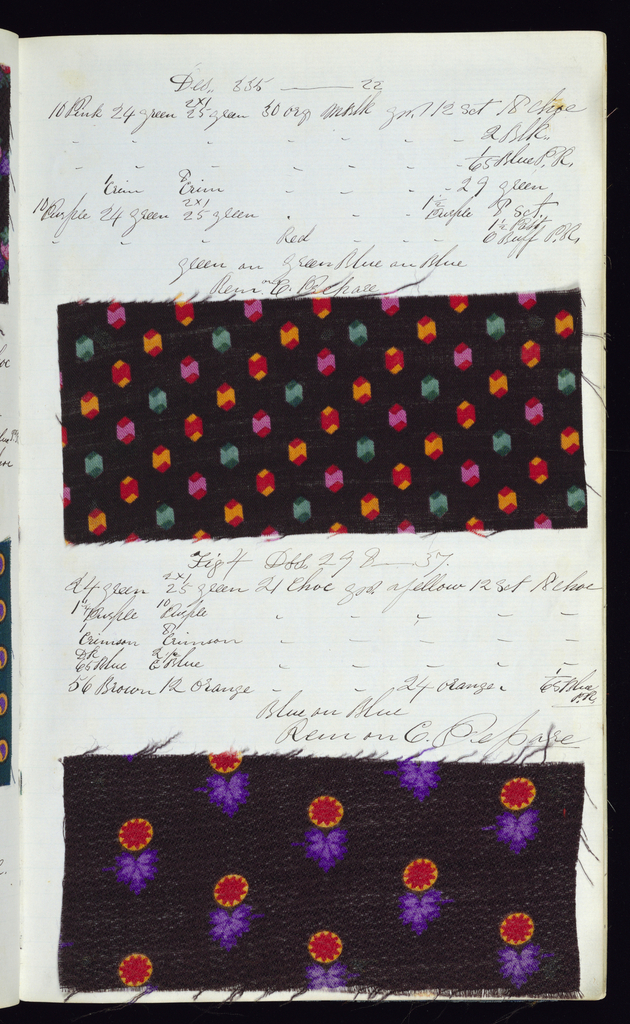 Des. 335 — 22
10 Pink 24 green 2x1 25 green 30 org MBlk 12 set 18 choc
" " " " " " 2 Blk.
" " " " " " 1/65 Blue P.R.
1 Crim 8 Crim " " " " 29 green
10 Purple 24 green 2x1 25 green " " 1 1/2 Purple 8 set.
" " " Red " " " Buff P.R.
green on green Blue on Blue
Rem on C.
Fig 4 Des. 298 — 37.
24 green 2x1 25 green 21 Choc yellow 12 set 18 choc
Purple 10 Purple " " " "
1 Crimson 8 Crimson " " " "
DK 65 Blue Blue " " " "
56 Brown 12 orange " " 24 orange " 1/65 Blue P.R.
Blue on Blue
Rem on C.